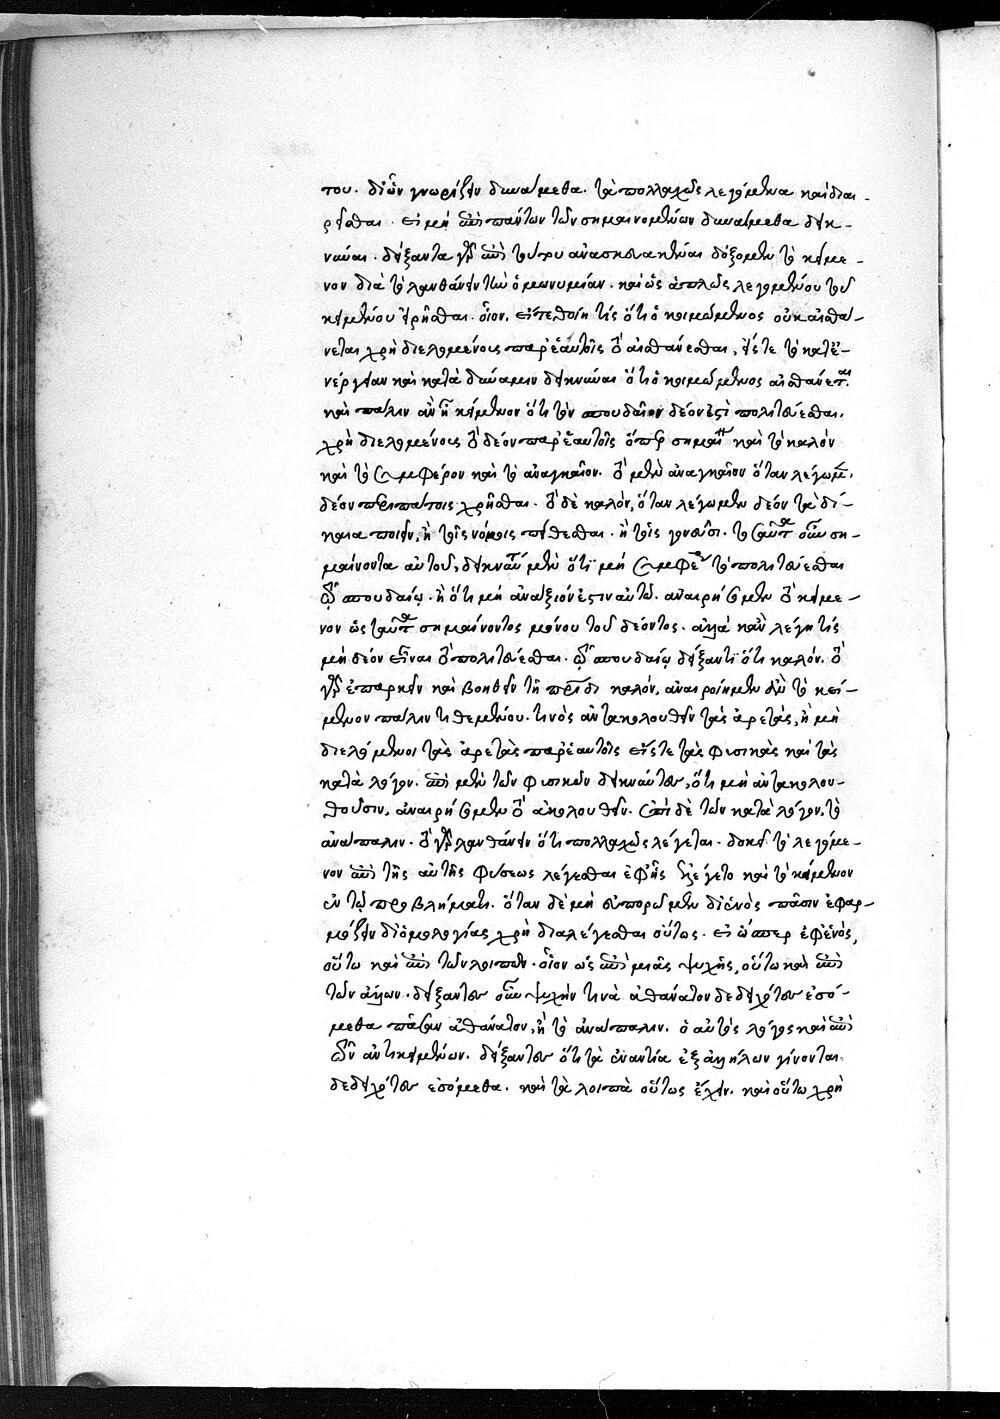 του. δι ὧν γνωρίζειν δυνάμεθα. τὰ πολλαχῶς λεγόμενα καὶ διαι-
ρεῖσθαι. εἰ μὴ ἐπὶ πάντων τῶν σημαινομένων δυναίμεθα δεικ-
νύναι. δείξαντα γὰρ ἐπὶ τούτου ἀνασκευακέναι δόξομεν τὸ κείμε-
νον διὰ τὸ λανθάνειν τὴν ὁμωνυμίαν. καὶ ὡς ἁπλῶς λεγομένου τοῦ
κειμένου χρῆσθαι. οἷον, εἴ τεθείη τίς ὅτι ὁ κοιμώμενος οὐκ αἰσθά-
νεται χρὴ διελομένοις παρ' ἑαυτοῖς τὸ αἰσθάνεσθαι, εἴς τε τὸ κατ' ἐ-
νέργειαν καὶ κατὰ δύναμιν δεικνύναι ὅτι ὁ κοιμώμενος αἰσθάνεται.
καὶ πάλιν ἂν ᾖ κείμενον ὅτι τὸν σπουδαῖον δέον ἐστὶ πολιτεύεσθαι,
χρὴ διελομένοις τὸ δέον παρ' ἑαυτοῖς ὅπερ σημαίνει καὶ τὸ καλὸν
καὶ τὸ συμφέρον καὶ τὸ ἀναγκαῖον. τὸ μὲν ἀναγκαῖον ὅταν λέγωμεν,
δέον περιπάτοις χρῆσθαι. τὸ δὲ καλὸν, ὅταν λέγωμεν δέον τὰ δί-
καια ποιεῖν, ἢ τοῖς νόμοις πείθεσθαι. ἢ τοῖς γονεῦσι. τοσαῦτα οὖν ση-
μαίνοντα αὐτοῦ, δεικνύναι μὲν ὅτι μὴ συμφέρει τὸ πολιτεύεσθαι
τῷ σπουδαίῳ. ἢ ὅτι μὴ ἀνάξιόν ἐστιν αὐτῷ. ἀναιρήσομεν τὸ κείμε-
νον ὡς ταῦτα σημαίνοντος μόνου τοῦ δέοντος. ἀλλὰ κἂν λέγῃ τίς
μὴ δέον εἶναι τὸ πολιτεύεσθαι. τῷ σπουδαίῳ δείξαντι ὅτι καλόν. τὸ
γὰρ ἐπαρκεῖν καὶ βοηθεῖν τῇ πατρίδι καλόν, ἀναιροίημεν ἂν τὸ κεί-
μενον πάλιν τιθεμένου. τινὸς ἀντακολουθεῖν τὰς ἀρετὰς, ἢ μὴ
διελόμενοι τὰς ἀρετὰς παρ' ἑαυτοῖς εἴς τε τὰς φυσικὰς καὶ τὰς
κατὰ λόγον. ἐπὶ μὲν τῶν φυσικῶν δεικνύντες, ὅτι μὴ ἀντακολου-
θοῦσιν, ἀναιρήσομεν τὸ ἀκολουθεῖν. ἐπὶ δὲ τῶν κατὰ λόγον, τὸ
ἀνάπαλιν. τὸ γὰρ λανθάνειν ὅτι πολλαχῶς λέγεται. δοκεῖ τὸ λεγόμε-
νον ἐπὶ τῆς αὐτῆς φύσεως λέγεσθαι ἐφ' ἧς ἐλέγετο καὶ τὸ κείμενον
ἐν τῷ προβλήματι. ὅταν δὲ μὴ εὐπορῶμεν δι' ἑνὸς πᾶσιν ἐφαρ-
μόζειν δι' ὁμολογίας χρὴ διαλέγεσθαι οὕτως. εἰ ὥσπερ ἐφ' ἑνὸς,
οὕτω καὶ ἐπὶ τῶν λοιπῶν. οἷον ὡς ἐπὶ μιᾶς ψυχῆς, οὕτω καὶ ἐπὶ
τῶν ἄλλων. δείξαντες οὖν ψυχήν τινὰ ἀθάνατον δεδειχότες ἐσό-
μεθα πᾶσαν ἀθάνατον, ἢ τὸ ἀνάπαλιν. ὁ αὐτὸς λόγος καὶ ἐπὶ
τῶν ἀντικειμένων. δείξαντες ὅτι τὰ ἐναντία ἐξ ἀλλήλων γίνονται.
δεδειχότες ἐσόμεθα. καὶ τὰ λοιπὰ οὕτως ἔχειν. καὶ οὕτω χρὴ